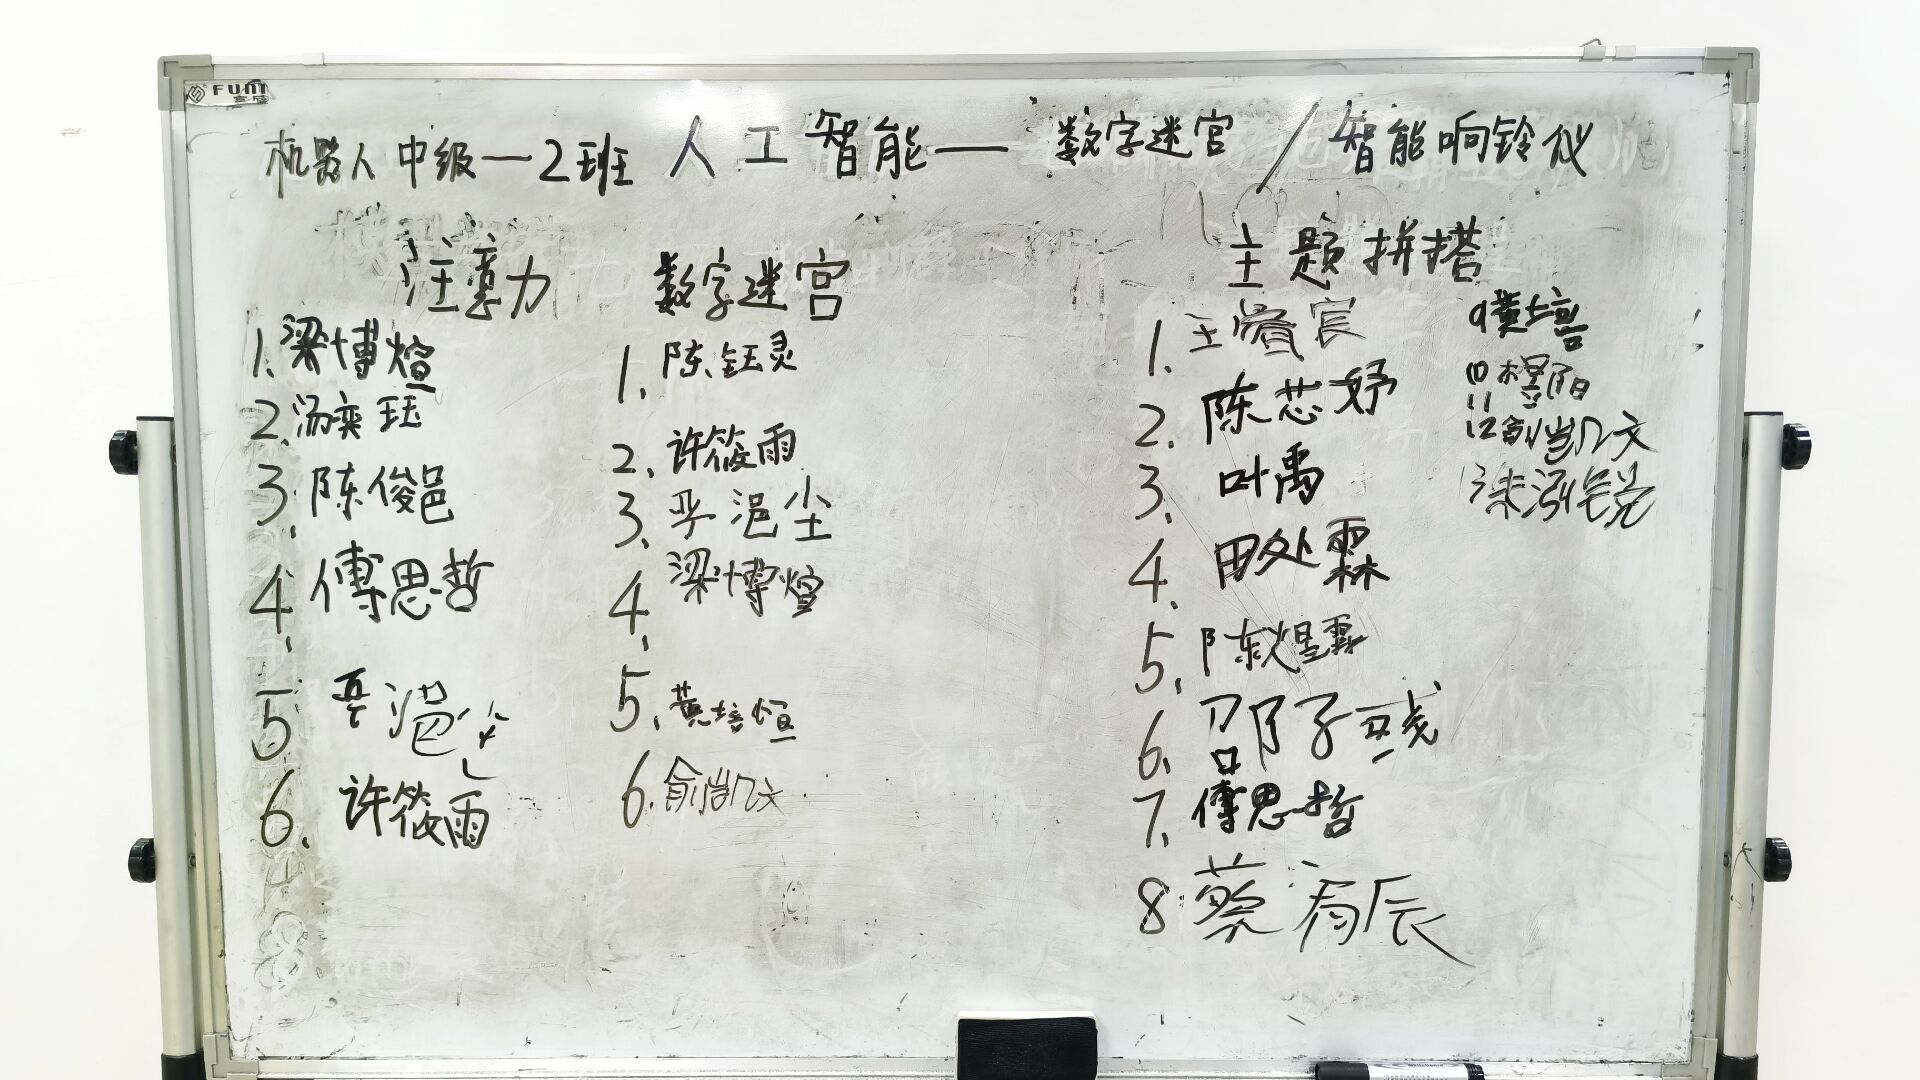 FUNI
富尼
机器人中级一2班 人工智能——数字迷宫/智能响铃仪
注意力
1.梁博煊
2.汤奕珏
3.陈俊邑
4.傅思哲
5
6.许筱雨
数字迷宫
1.陈钰灵
2.许筱雨
3.浥尘
4.梁博煊
5.黄培烜
6.俞凯文
主题拼搭
1.王睿宸
2.陈芯妤
3.叶禹
4.田处霖
5.陈煜霖
6.邵子
7.傅思哲
8.蔡辰
9黄培
10
11
12俞凯文
13